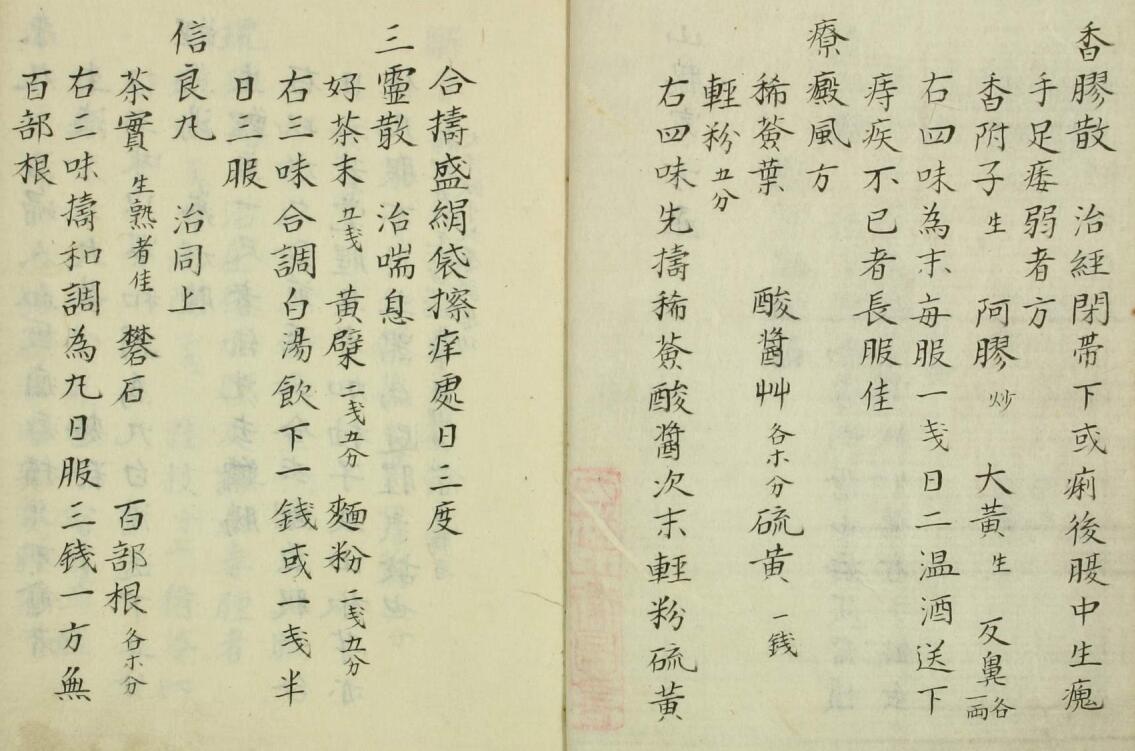 香膠散 治經閉帶下或痢後腰中生瘣
手足痿弱者方
香附子生 阿膠炒 大黃生 反鼻各一兩
右四味為末每服一戔日二温酒送下
痔疾不已者長服佳
療癜風方
豨薟葉 酸醬艸各木分 硫黃一錢
輕粉五分
右四味先擣豨薟酸醬次末輕粉硫黃
合擣盛絹袋擦痒處日三度
三靈散 治喘息
好茶末五戔 黃檗二戔五分 麵粉二戔五分
右三味合調白湯飲下一錢或一戔半
日三服
信良丸 治同上
茶實生熟者佳 礬石 百部根各木分
右三味擣和調為丸日服三錢一方無
百部根